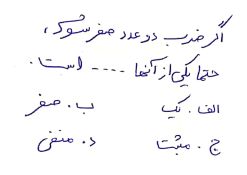 اگر ضرب دو عدد صفر شود،
حتما یکی از آنها .... است.
الف. یک ب. صفر
ج. مثبت د. منفی